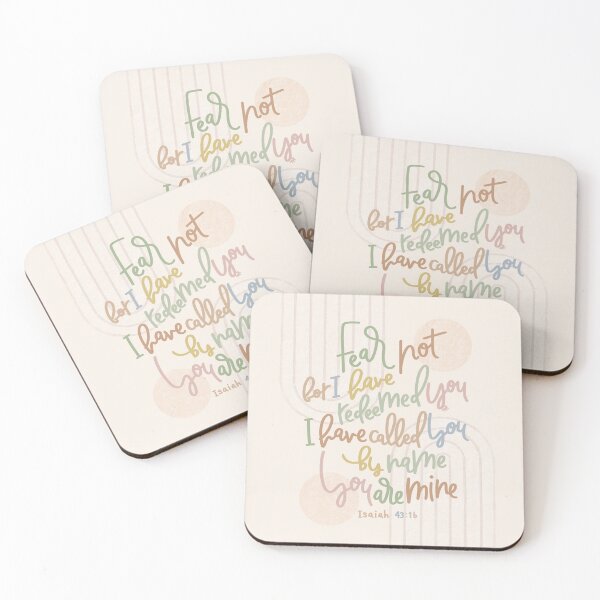 Fear not
for I have
redeemed you
You
Fear not
for I have
redeemed you
I have called You
by name
Fear not
for I have
redeemed you
I have called You
by name
You are
Isaiah
Fear not
for I have
redeemed you
I have called You
by name
You are mine
Isaiah 43:1b